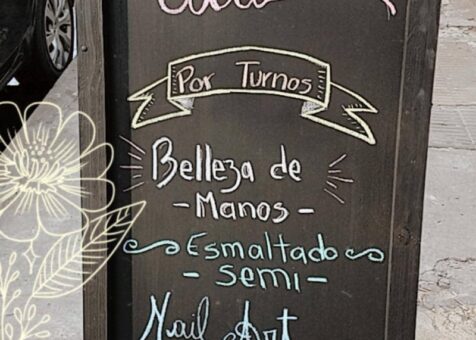 Por Turnos
Belleza de
- Manos -
Esmaltado
- semi -
Nail Art